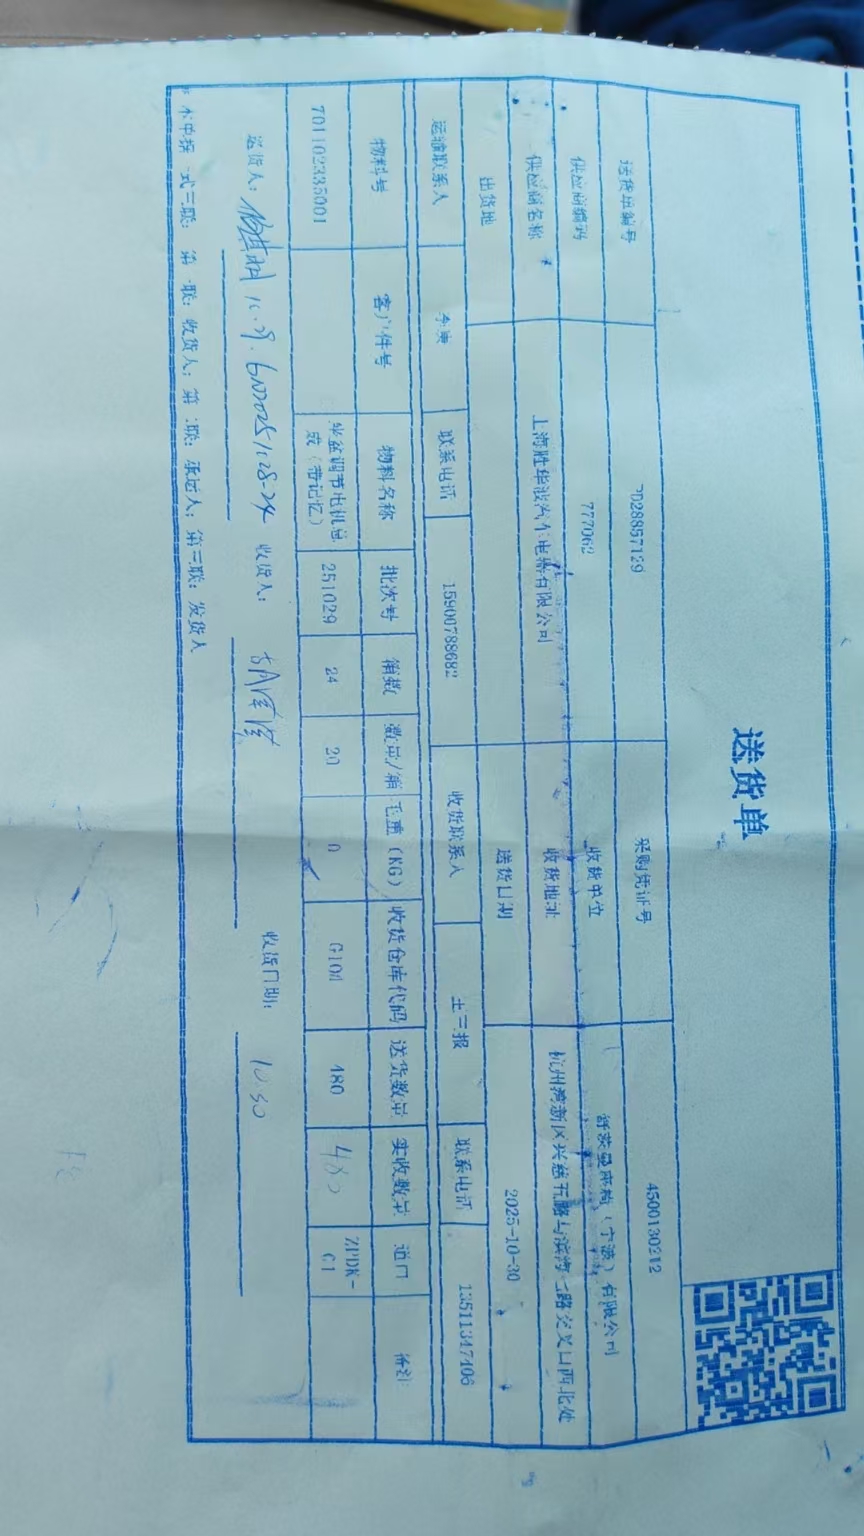 送货单
送货单编号 7028857129 采购凭证号 4500130212
供应商编码 777062 收货单位 (宁波)有限公司
供应商名称 上海胜华波汽车电器有限公司 收货地址 杭州湾新区兴慈五路与滨海二路交叉口西北处
出货地 送货日期 2025-10-30
运输联系人 联系电话 15900788682 收货联系人 联系电话 13511347406
物料号 客户件号 物料名称 批次号 箱数 数量/箱 毛重(KG) 收货仓库代码 送货数量 实收数量 道口 备注
701102335001 坐盆调节电机总成(带记忆) 251029 24 20 0 G104 480 480 ZPDK-C1
送货人: 10.29. 收货人: 收货日期: 10.30
第一联: 收货人; 第二联: 承运人; 第三联: 发货人